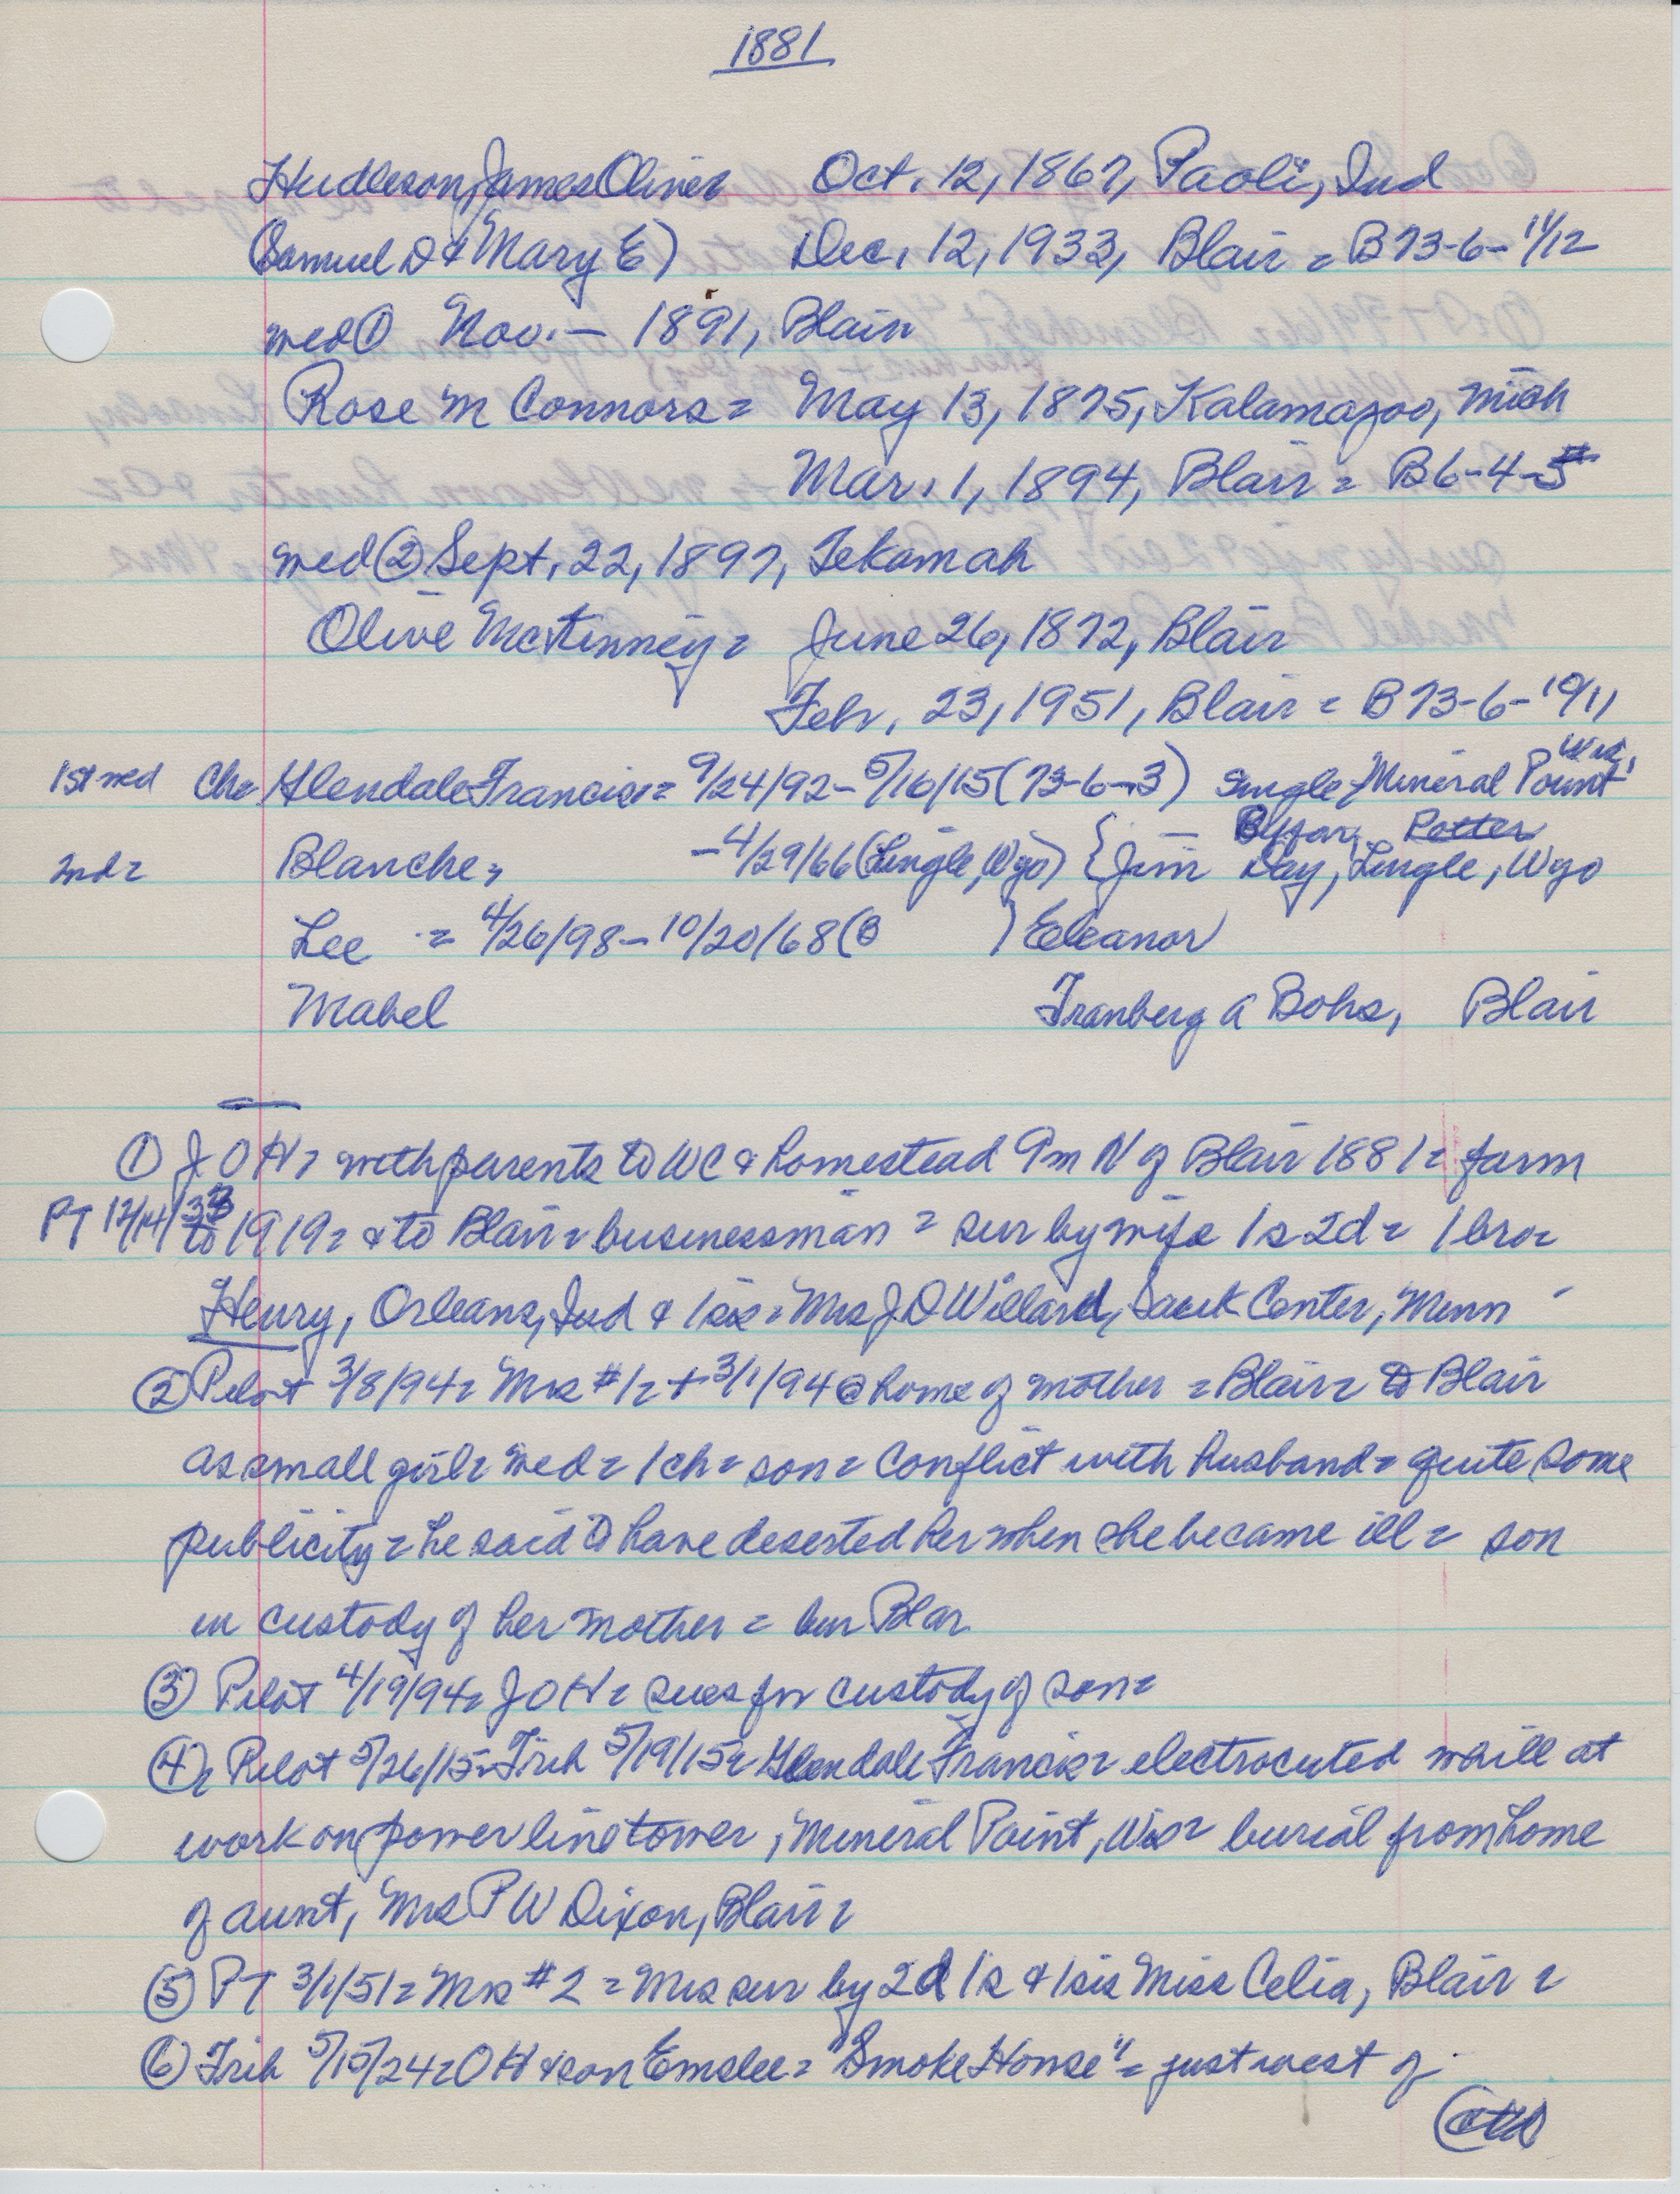 1881
Hudleson, James Oliver Oct. 12, 1867, Paoli, Ind
(Samuel D & Mary E) Dec. 12, 1933, Blair = B73-6-11/12
med ① Nov. — 1891, Blair
Rose M Connors = May 13, 1875, Kalamazoo, Mich
Mar. 1, 1894, Blair = B6-4-5
med ② Sept. 22, 1897, Tekamah
Olive McKinney = June 26, 1872, Blair
Febr. 23, 1951, Blair = B73-6-10/11
Wis,
1st med Ch = Glendale Francis = 9/24/92 - 5/16/15 (73-6-3) Single Mineral Point
Potter
2nd = Blanche, - 4/29/66 (Lingle, Wyo) { Jim Day, Lingle, Wyo
Lee = 4/26/98 - 10/20/68 (B ) Eleanor
Mabel Franberg A Bohs, Blair
① J O H = with parents to WC & homestead 9m N of Blair 1881 = farm
PT 12/14/33 to 1919 = & to Blair = businessman = sur by wife 1s 2d = 1 bro =
Henry, Orleans, Ind & 1 sis = Mrs J O Willard, Sauk Center, Minn
② Pilot 3/8/94 = Mrs #1 = + 3/1/94 @ home of mother = Blair = to Blair
as small girl = med = 1 ch = son = conflict with husband = quite some
publicity = he said to have deserted her when she became ill = son
in custody of her mother = bur Blar
③ Pilot 4/19/94 = J O H = sues for custody of son =
④ = Pilot 5/26/15 = Trib 5/19/15 = Glendale Francis = electrocuted while at
work on power line tower, Mineral Point, Wis = burial from home
of aunt, Mrs P W Dixon, Blair =
⑤ PT 3/1/51 = Mrs #2 = Mrs sur by 2d 1s & 1 sis Miss Celia, Blair =
⑥ Trib 5/15/24 = O H & son Emslee = "Smoke House" = just west of